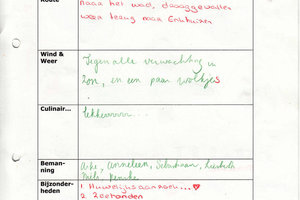 Route
naar het wad, drooggevallen
weer terug naar Enkhuizen
Wind &
Weer
Tegen alle verwachting in
zon, en een paar wolkjes
Culinair...
lekkerrrrr....
Beman-
ning
Anneleen, Sebastiaan, Liesbeth
Niels,
Bijzonder-
heden
1 Huwelijksaanzoek...
2 Zeehonden